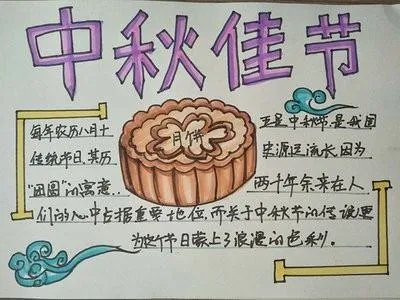 中秋佳节
每年农历八月十 五是中秋节.是我国
传统节日,其历 史源远流长,因为
月饼
"团圆"的寓意.. 两千年余来在人
们的心中占据重要地位,而关于中秋节的传说更
为这个节日蒙上了浪漫的色彩。